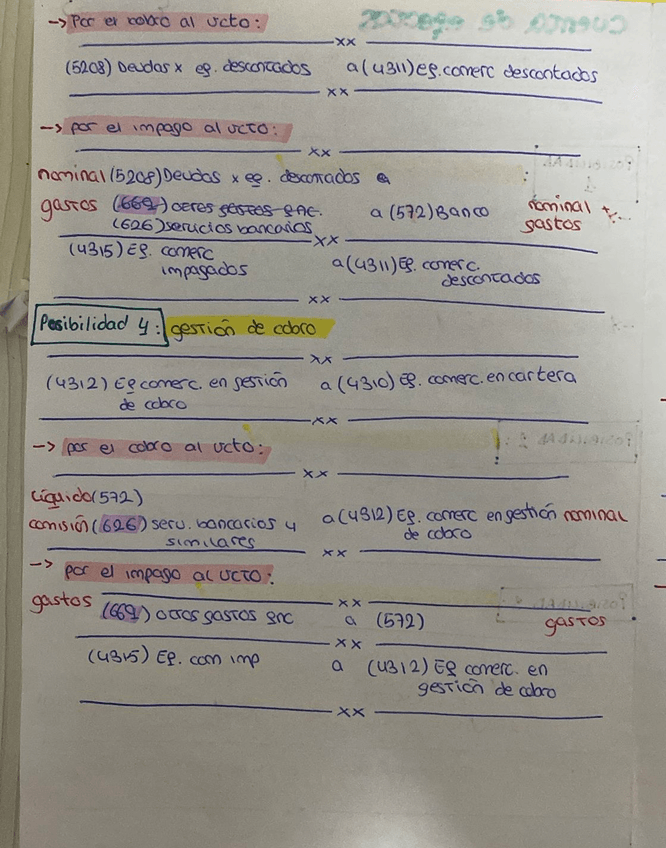 -> Por el cobro al vcto:
xx
(5208) Deudas x ef. descontados a (4311) Ef. comerc descontados
xx
-> por el impago al vcto:
xx
nominal (5208) Deudas x ef. descontados a
gastos (669) otros gastos fnc. a (572) Banco nominal +
(626) servicios bancarios gastos
xx
(4315) Ef. comerc a (4311) Ef. comerc.
impagados descontados
xx
Posibilidad 4: gestión de cobro
xx
(4312) Ef comerc. en gestión a (4310) Ef. comerc. en cartera
de cobro
xx
-> por el cobro al vcto:
xx
Líquido (572)
comisión (626) serv. bancarios y a (4312) Ef. comerc en gestión nominal
similares de cobro
xx
-> por el impago al vcto:
gastos xx
(669) otros gastos fnc a (572) gastos
xx
(4315) Ef. com imp a (4312) Ef comerc. en
gestión de cobro
xx